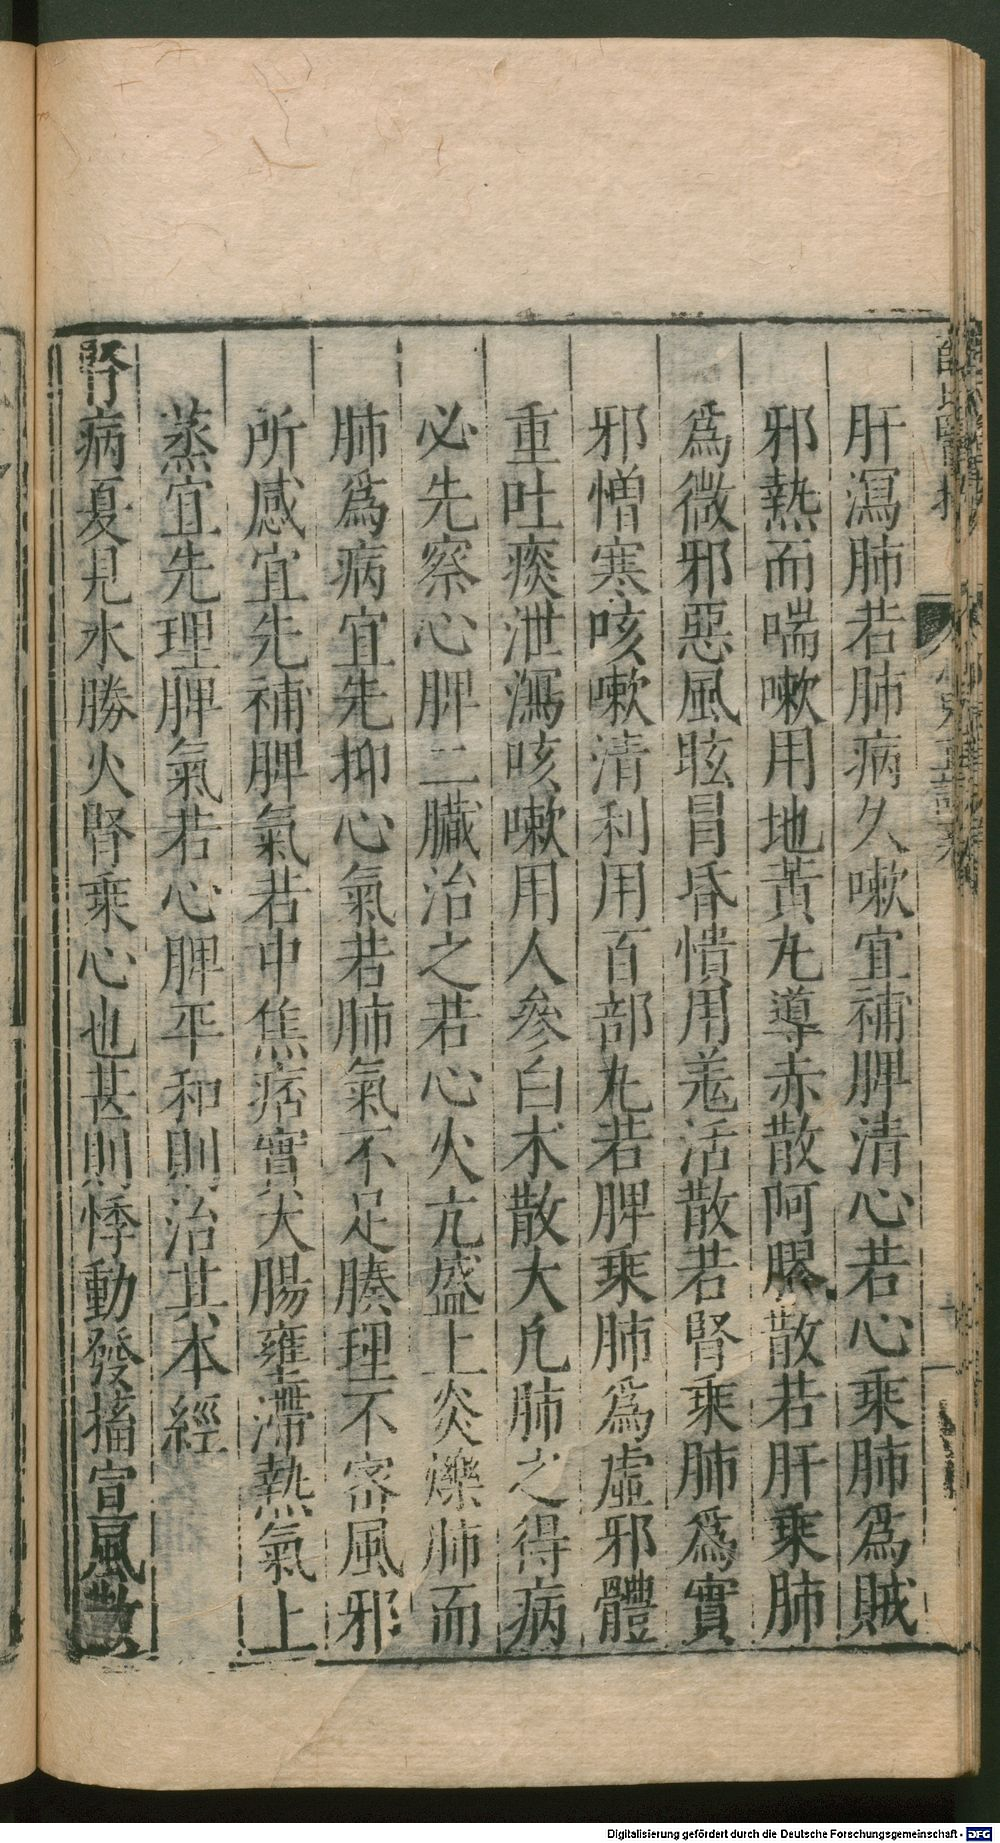 肝瀉肺若肺病久嗽宜補脾清心若心乘肺爲賊
邪熱而喘嗽用地黃丸導赤散阿膠散若肝乘肺
爲微邪惡風眩冒昏憒用羗活散若腎乘肺爲實
邪憎寒咳嗽清利用百部丸若脾乘肺爲虛邪體
重吐痰泄瀉咳嗽用人參白朮散大凡肺之得病
必先察心脾二臟治之若心火亢盛上炎爍肺而
肺爲病宜先抑心氣若肺氣不足腠理不密風邪
所感宜先補脾氣若中焦痞實大腸壅滯熱氣上
蒸宜先理脾氣若心脾平和則治其本經
腎病夏見水勝火腎乘心也甚則悸動發搐宣風散
Digitalisierung gefördert durch die Deutsche Forschungsgemeinschaft - DFG